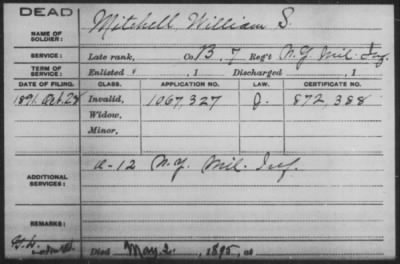 DEAD
NAME OF SOLDIER: Mitchell, William S.
SERVICE: Late rank, Co. B, 7 Reg't N.Y. Mil. Inf.
TERM OF SERVICE: Enlisted , 1 Discharged , 1
DATE OF FILING. CLASS. APPLICATION NO. LAW. CERTIFICATE NO.
1891 Oct. 28 Invalid, 1067,327 J. 872,388
Widow,
Minor,
ADDITIONAL SERVICES: A-12 N.Y. Mil. Inf.
REMARKS:
Died May 2, 1895, at